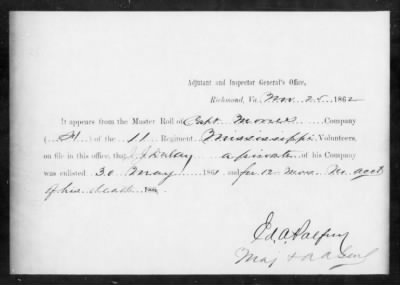 Adjutant and Inspector General's Office,
Richmond, Va. Nov. 25 1862
It appears from the Master Roll of Capt. Moore's Company
( H ) of the 11 Regiment Mississippi Volunteers,
on file in this office, that J. J. a private of his Company
was enlisted 30 May 1861 and for 12 Mos. No acct
of his death 186
Ed. A. Palfrey
Maj & A A Genl